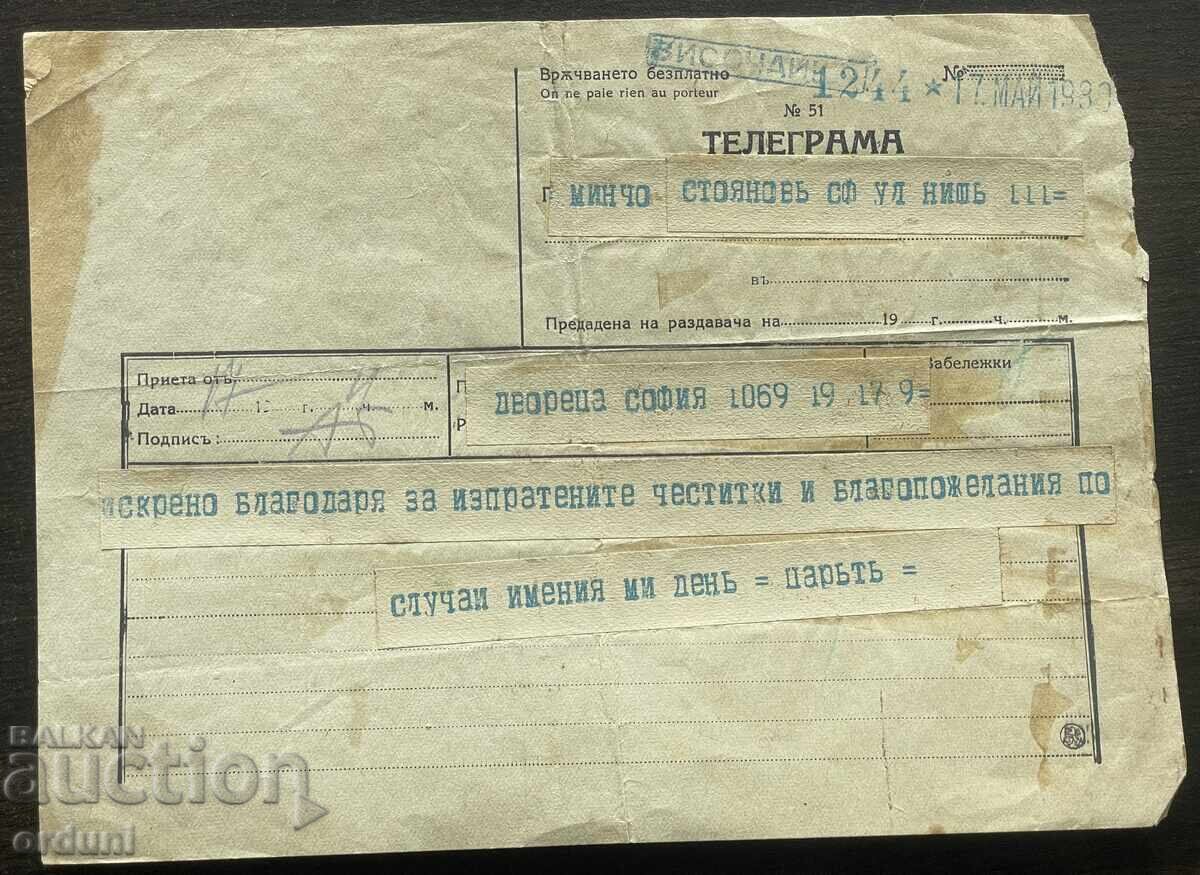 Врѫчването безплатно
On ne paie rien au porteur
1244 * 17. МАЙ 1930
№
№ 51
ТЕЛЕГРАМА
МИНЧО СТОЯНОВЬ СФ УЛ НИШЬ 111=
въ
Предадена на раздавача на 19 г. ч. м.
Приета отъ
Дата 17 19 г. ч. м.
Подписъ:
ДВОРЕЦА СОФИЯ 1069 19 17 9=
Забележки
ИСКРЕНО БЛАГОДАРЯ ЗА ИЗПРАТЕНИТЕ ЧЕСТИТКИ И БЛАГОПОЖЕЛАНИЯ ПО
СЛУЧАИ ИМЕНИЯ МИ ДЕНЬ = ЦАРЬТЬ =
BALKAN
auction
orduni